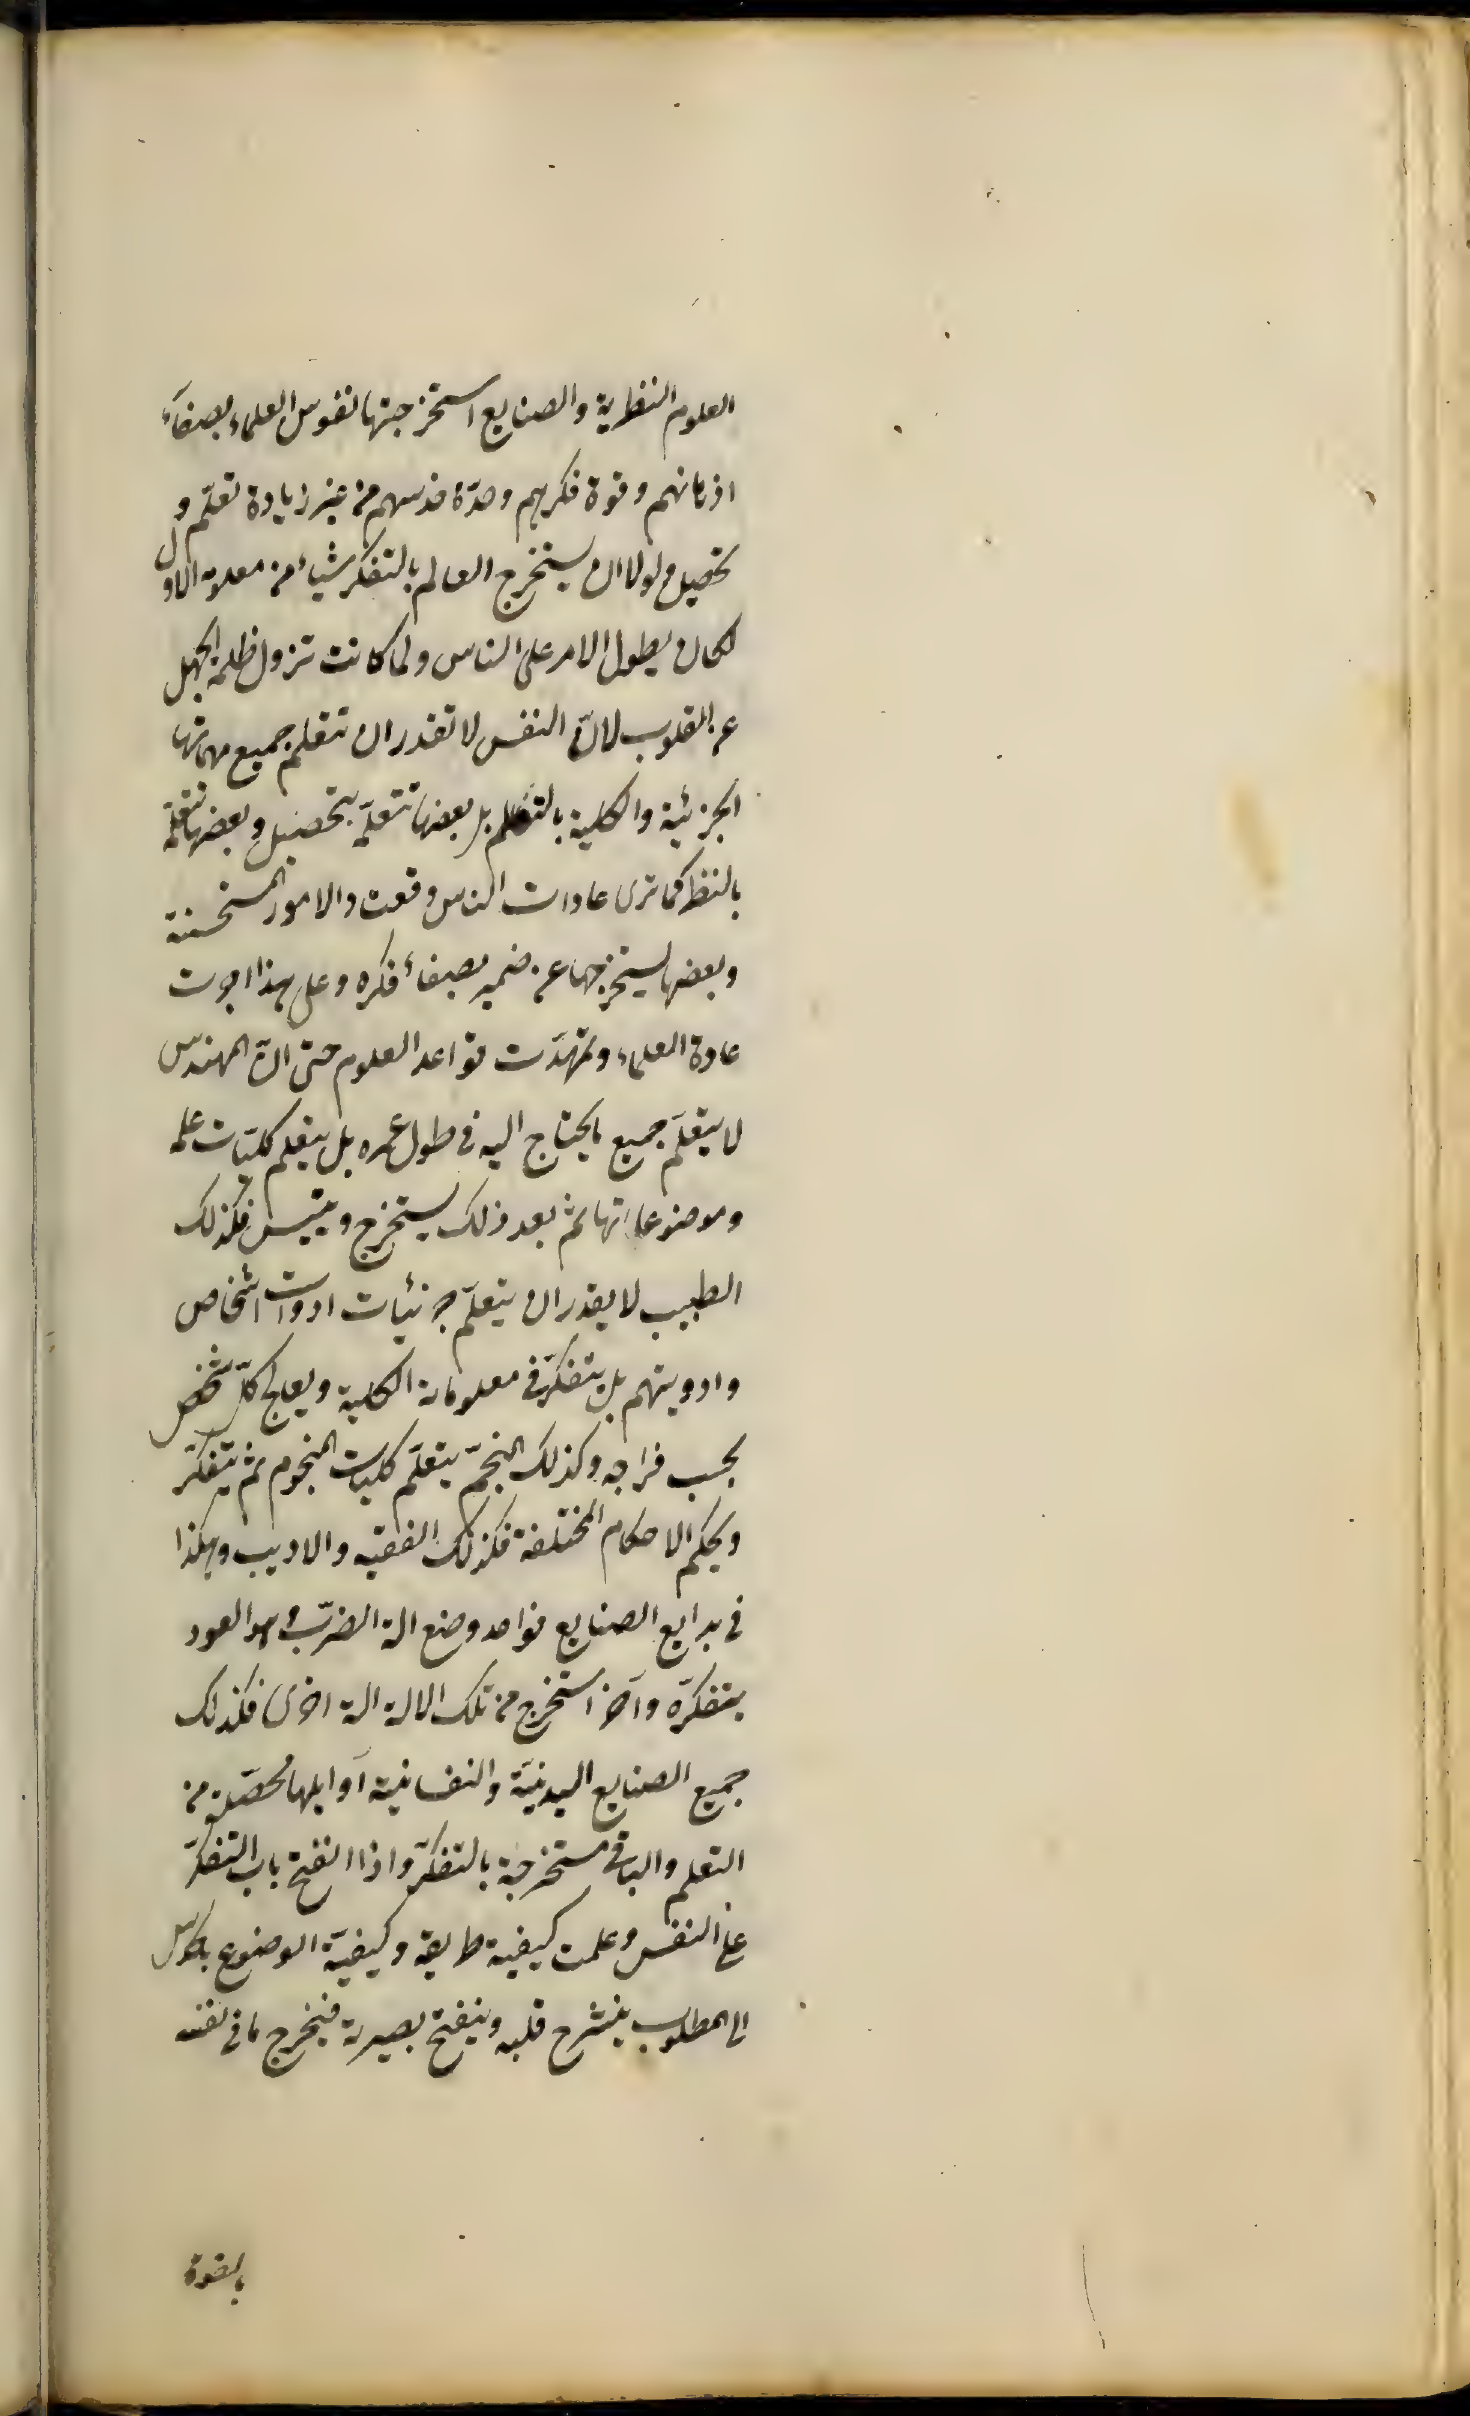 العلوم النظرية والصنايع استخرجتها نفوس العلماء بصفاء
اذهانهم وقوة فكرهم وحدّة حدسهم من غير زيادة تعلّم و
تحصيل ولولا ان يستخرج العالم بالتفكر شياء من معلومه الاول
لكان يطول الامر على الناس ولما كانت تزول ظلمة الجهل
عن القلوب لانّ النفس لا تقدر ان تتعلم جميع مهماتها
الجزئية والكلية بالتعلم بل بعضها تتعلّم بتحصيل وبعضها تتعلّم
بالنظر كما ترى عادات الناس وقعت والامور المستحسنة
وبعضها يستخرجها عن ضمير بصفاء فكره وعلى هذا جرت
عادة العلماء وتمهّدت قواعد العلوم حتى انّ المهندس
لا يتعلّم جميع ما يحتاج اليه في طول عمره بل يتعلم كليّات علمه
وموضوعاتها ثم بعد ذلك يستخرج ويقيس فكذلك
الطبيب لا يقدر ان يتعلّم جزئيات ادوات اشخاص
وادويتهم بل يتفكّر في معلوماته الكلية ويعالج كلّ شخص
بحسب مزاجه وكذلك المنجمّ يتعلّم كليات النجوم ثم يتفكّر
ويحكم الاحكام المختلفة فكذلك الفقيه والاديب وهكذا
في بدايع الصنايع فواحد وضع الة الضرّب وهو العود
بتفكرّه وآخر استخرج من تلك الالة الة اخرى فكذلك
جميع الصنايع البدنيّة والنفسانية آوايلها محصّلة من
التعلم والباقي مستخرجة بالتفكرّ واذا انفتح باب التفكرّ
على النفس وعلمت كيفية طريقه وكيفيّة الوضوع بالحدس
الى المطلوب ينشرح قلبه وينفتح بصيرته فيخرج ما في نفسه
بالقوة